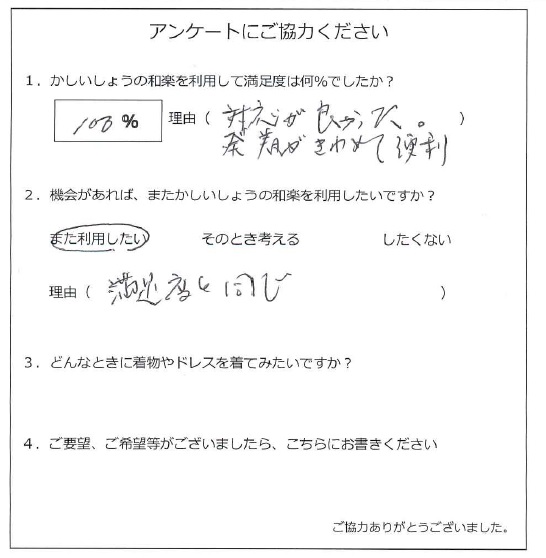 アンケートにご協力ください
1．かしいしょうの和楽を利用して満足度は何％でしたか？
100 % 理由（ 対応が良かった。 ）
がきわめて便利
2．機会があれば、またかしいしょうの和楽を利用したいですか？
また利用したい そのとき考える したくない
理由（ 満足度と同じ ）
3．どんなときに着物やドレスを着てみたいですか？
4．ご要望、ご希望等がございましたら、こちらにお書きください
ご協力ありがとうございました。